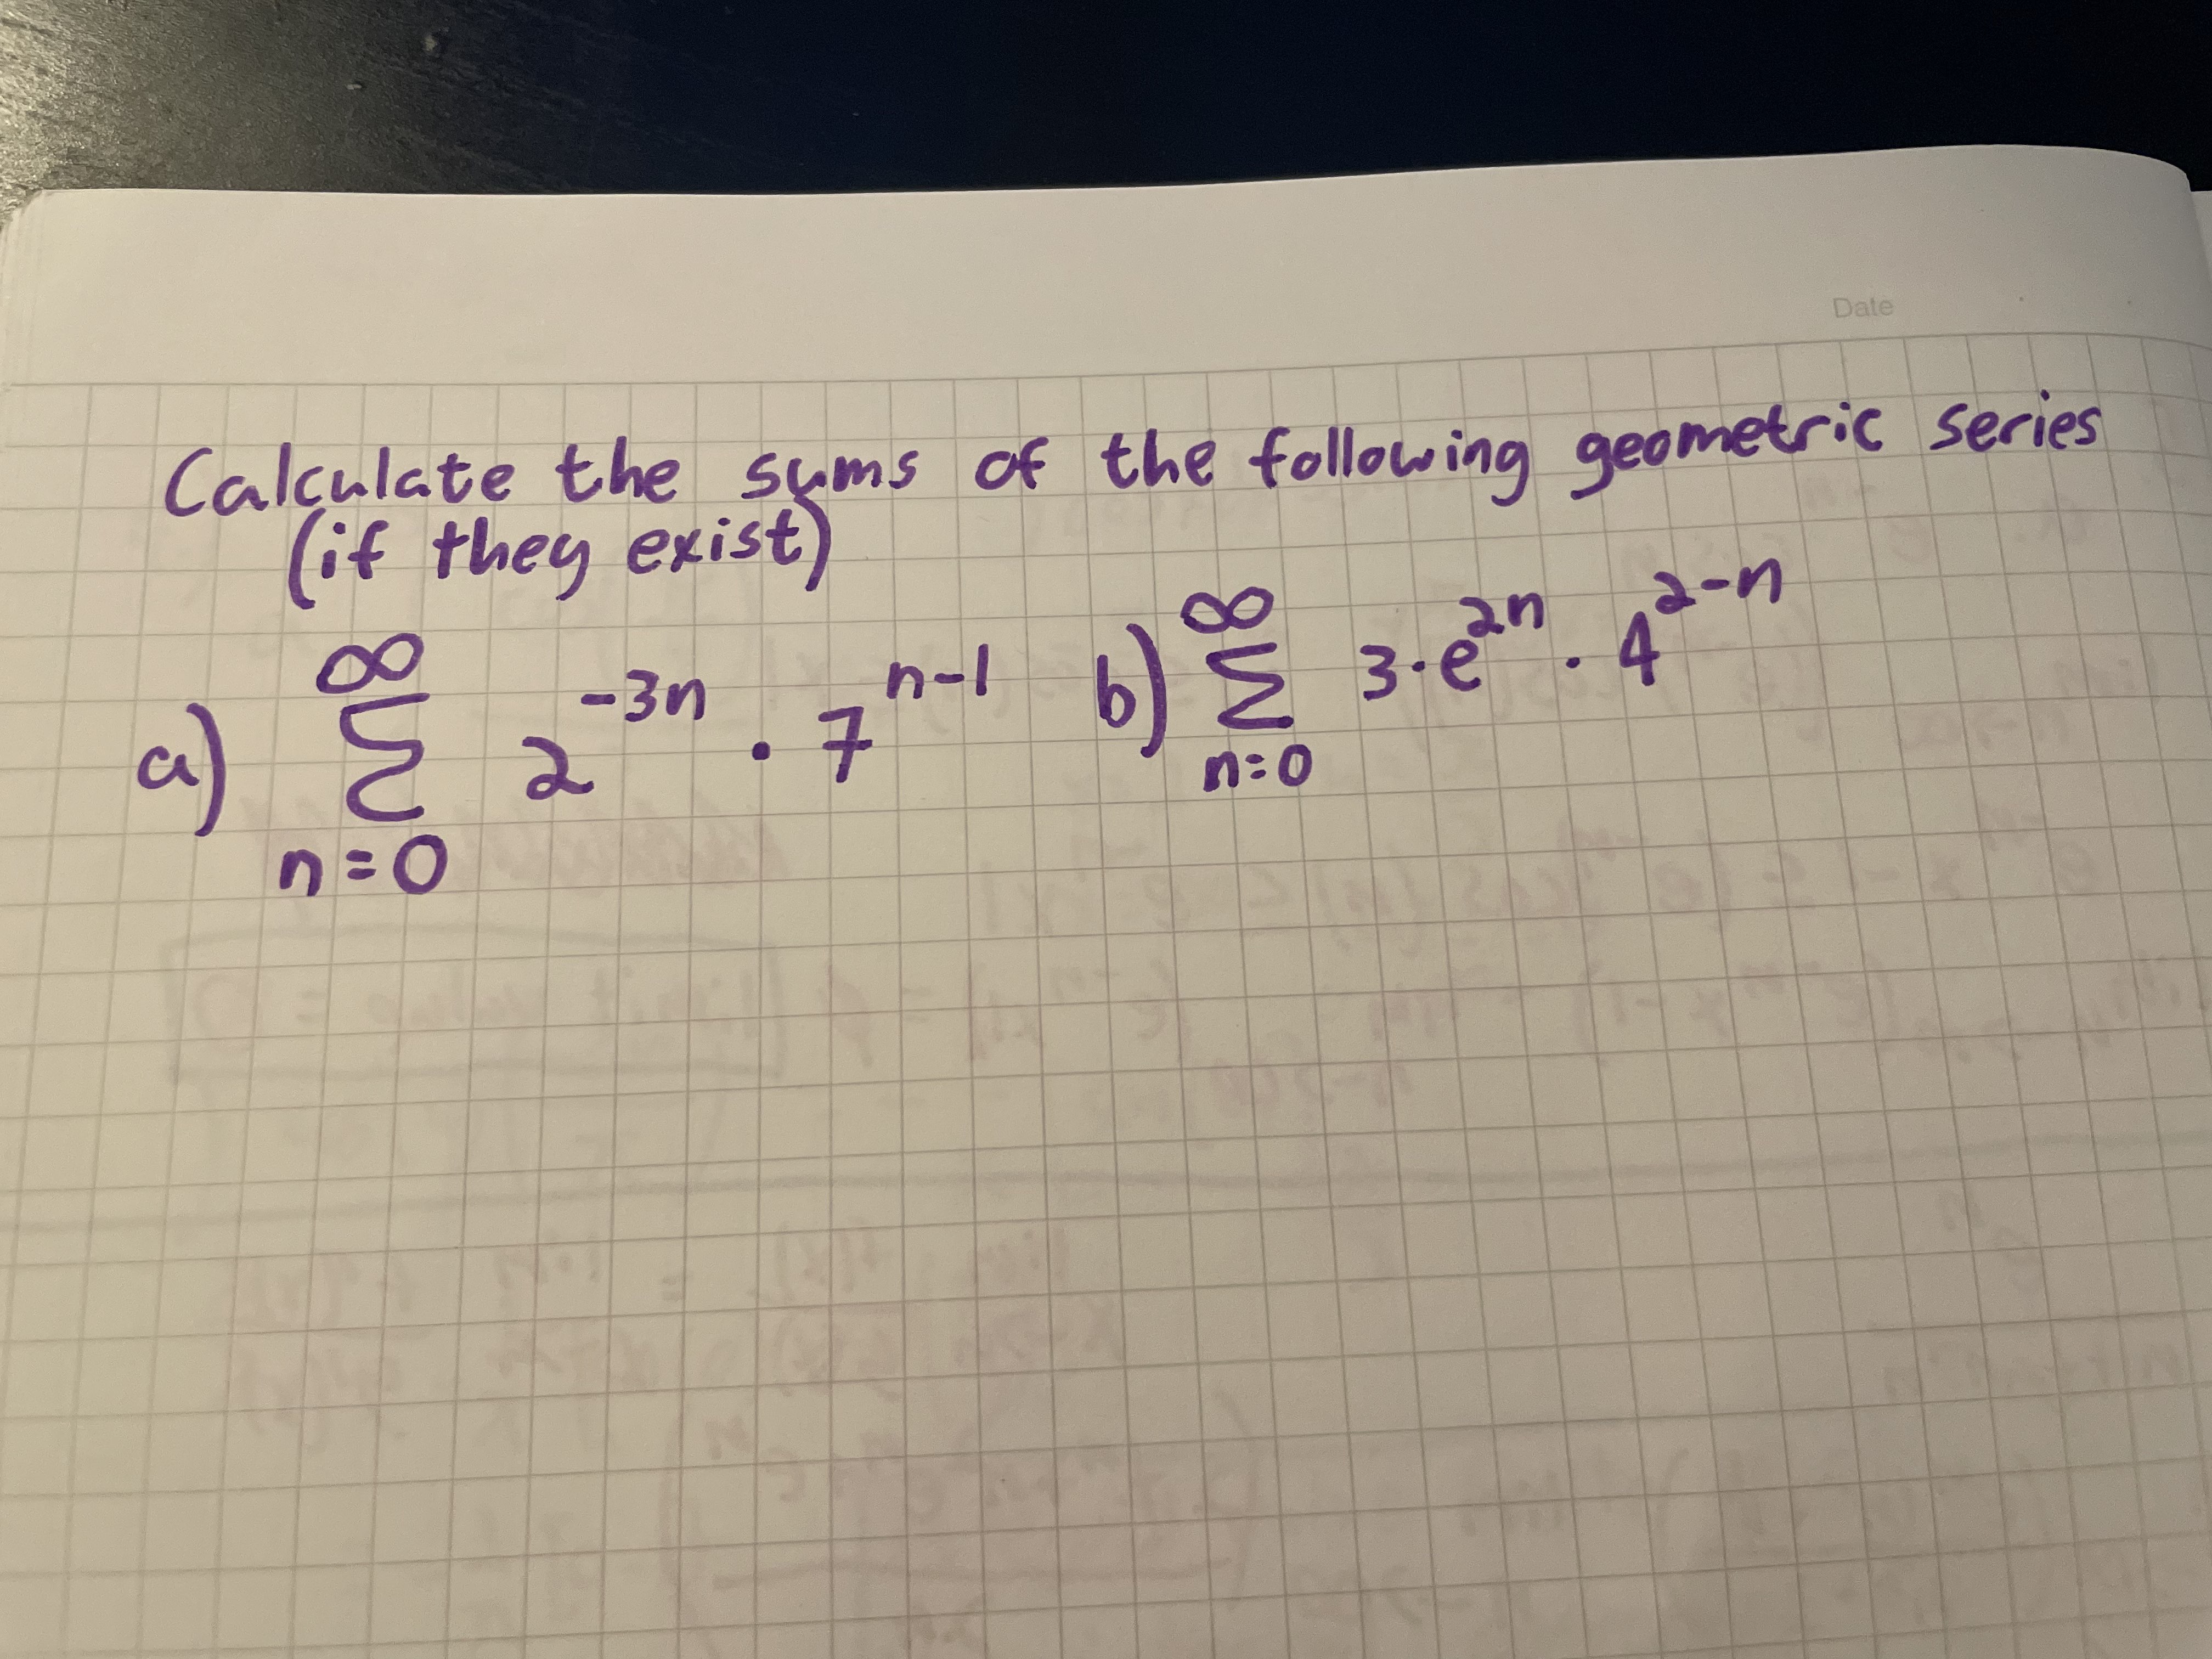 Date
Calculate the sums of the following geometric series
(if they exist)
a) ∞ Σ n=0 2^{-3n} · 7^{n-1} b) ∞ Σ n=0 3·e^{2n} · 4^{2-n}